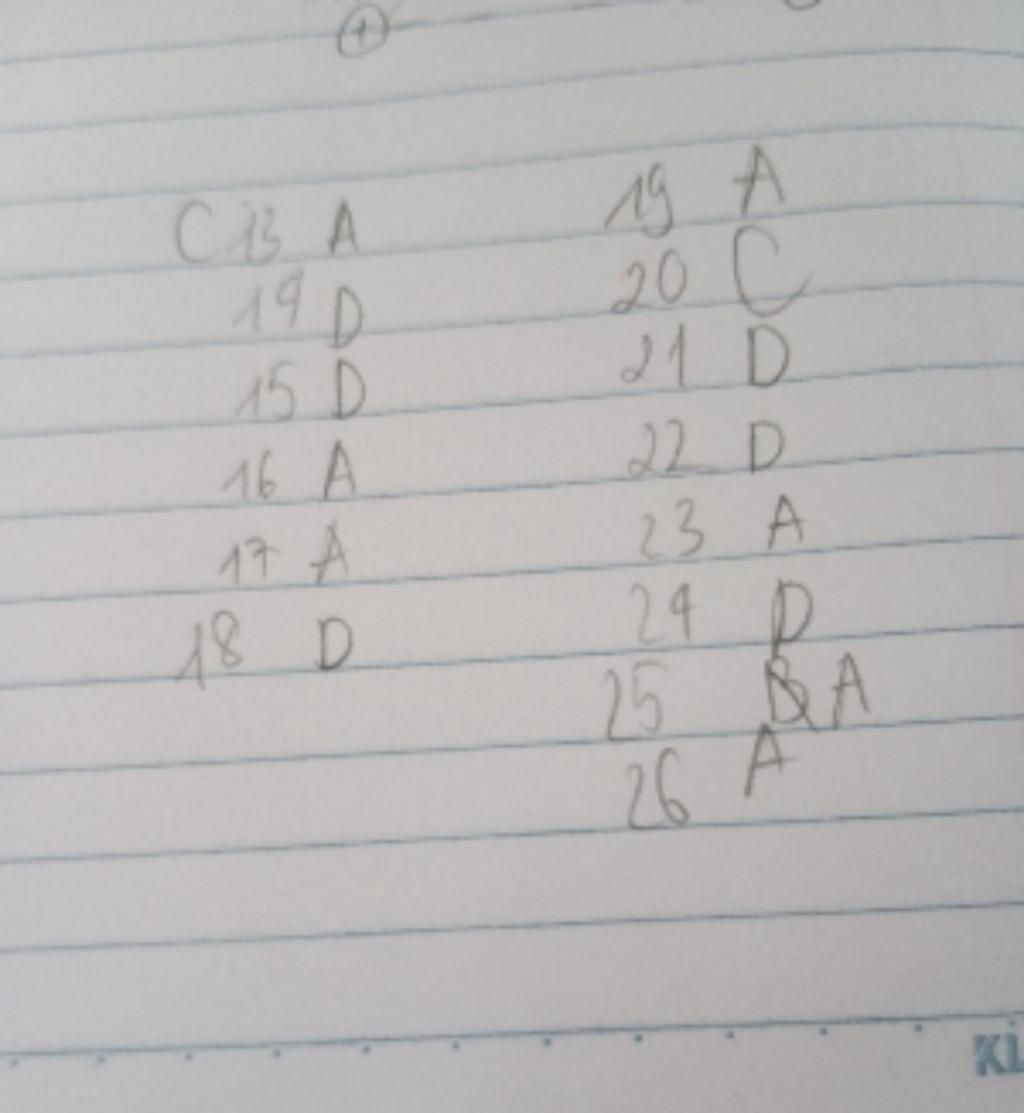 C 13 A
14 D
15 D
16 A
17 A
18 D
19 A
20 C
21 D
22 D
23 A
24 D
25 B A
26 A